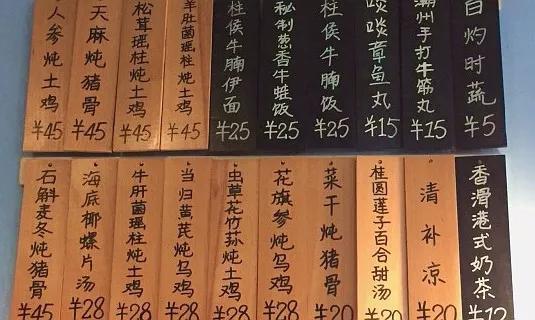 人参炖土鸡 ¥45
天麻炖猪骨 ¥45
松茸瑶柱炖土鸡 ¥45
羊肚菌瑶柱炖土鸡 ¥45
柱侯牛腩伊面 ¥25
私制葱香牛蛙饭 ¥25
柱侯牛腩饭 ¥25
啖啖章鱼丸 ¥15
潮州手打牛筋丸 ¥15
白灼时蔬 ¥5
石斛麦冬炖猪骨 ¥45
海底椰螺片汤 ¥28
牛肝菌瑶柱炖土鸡 ¥28
当归黄芪炖乌鸡 ¥28
虫草花竹荪炖土鸡 ¥28
花旗参炖乌鸡 ¥28
菜干炖猪骨 ¥20
桂圆莲子百合甜汤 ¥20
清补凉 ¥20
香滑港式奶茶 ¥12